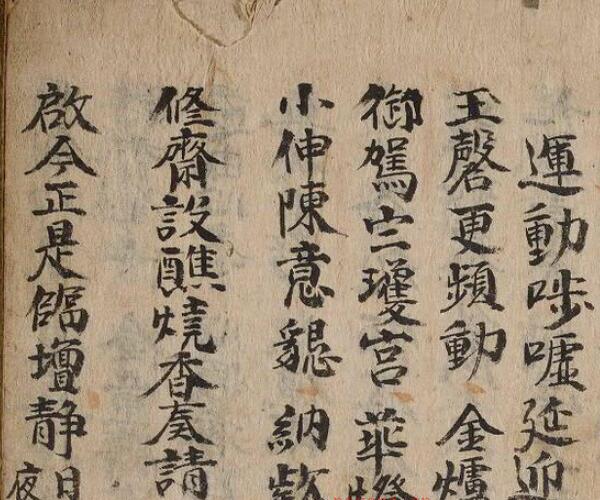 運動步噓延迎
玉磬更頻動金爐
御駕出瓊宮華燈
小伸陳意懇納款
修齋設醮燒香奏請
啟今正是臨壇靜日
夜